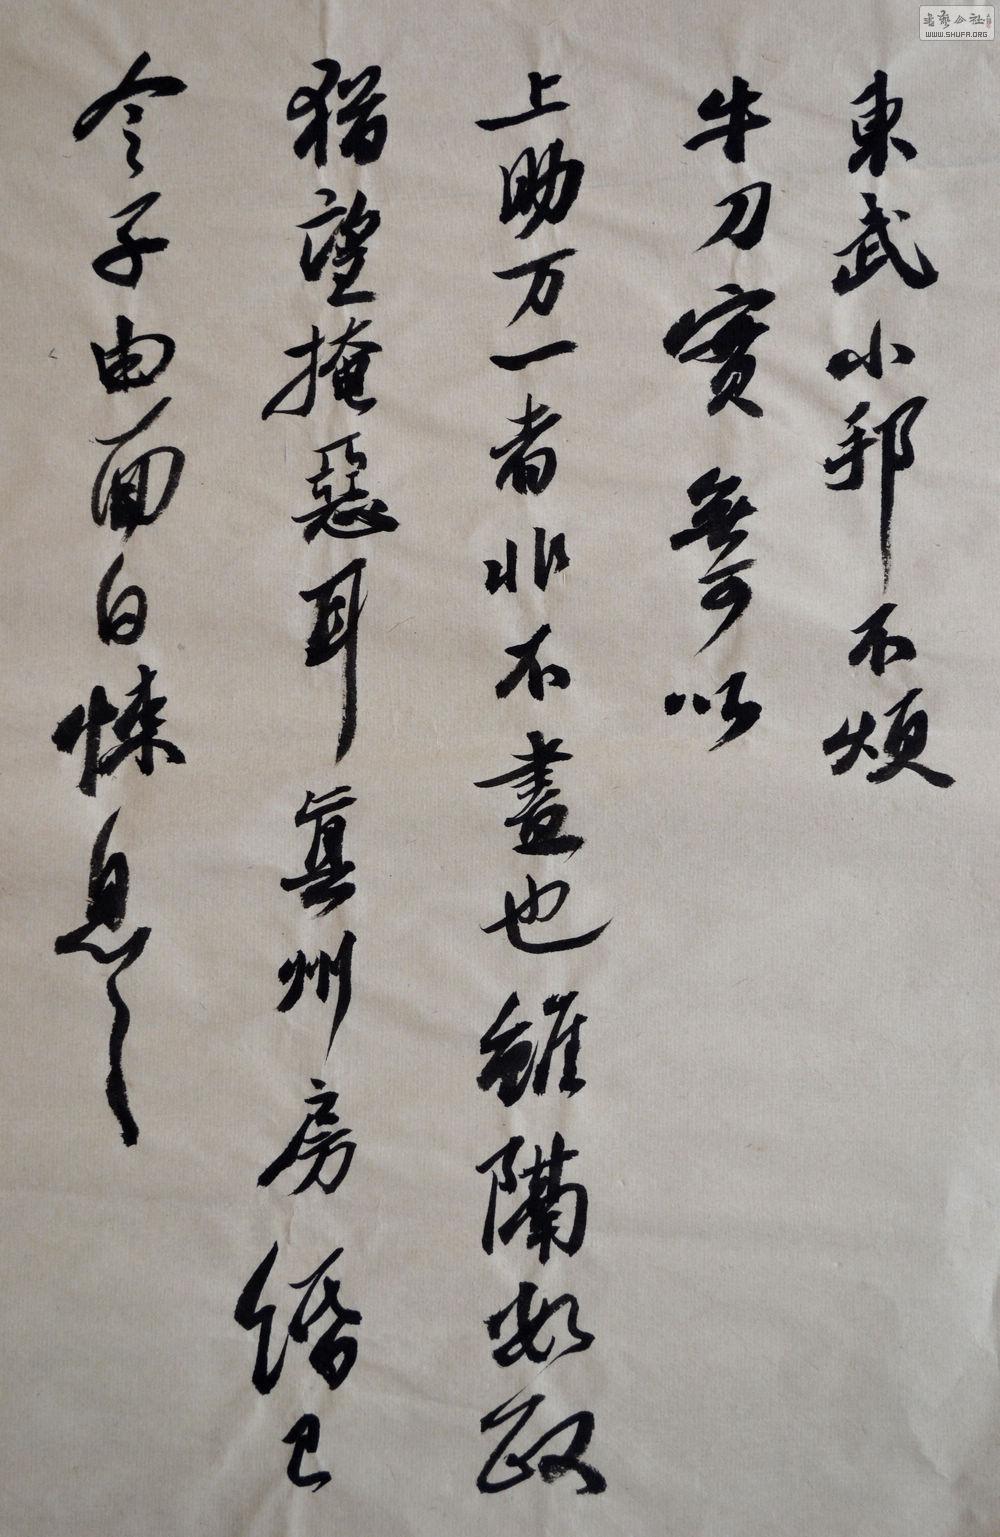 東武小邦不煩
牛刀實無可以
上助万一者非不盡也雖隔數政
猶望掩惡耳真州房緡已
令子由面白悚息〻
書藝公社
WWW.SHUFA.ORG